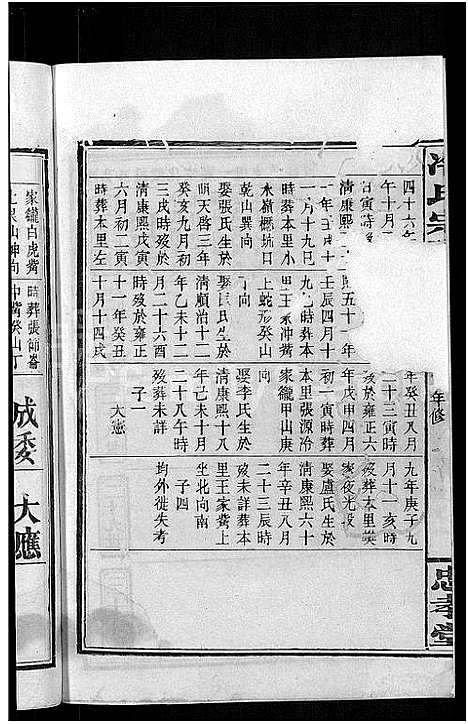 氏宗
年修
忠孝堂
四十六年
午十月
清康熙
一月十九巳
時葬本里小
水嶺概坑口
乾山巽向
娶張氏生於
明天啓三年
癸亥九月初
三戌時歿於
清康熙戊寅
六月初二寅
時葬本里左
五十一年
壬辰四月十
時葬本
里王家沖嘴
上蛇形癸山
向
氏生於
清順治十二
年乙未十二
月二十六酉
時歿於雍正
十一年癸丑
十月十四戌
年癸丑八月
二十三寅時
歿於雍正六
年戊申四月
初一寅時葬
本里張源冷
家籠甲山庚
向
娶李氏生於
清康熙十八
年己未十二
二十八午時
歿葬未詳
子一
大憲
九年庚子九
月十一亥時
歿葬本里
家夜光段
娶盧氏生於
清康熙六十
年辛丑八月
二十三辰時
歿未詳葬本
里王家嘴上
坐北向南
子四
均外徙失考
家籠白虎嘴
山坤向
時葬張師崙
沖嘴癸山丁
成委
大應